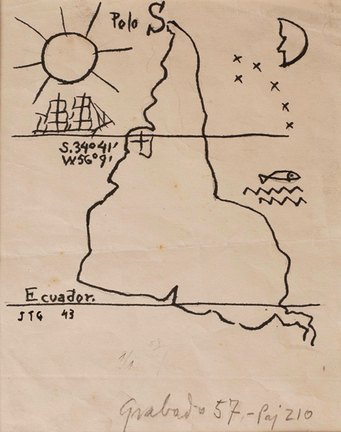 Polo S.
S.34°41'
W.56°9'
Ecuador.
JTG 43
Grabado 57.- Paj 210